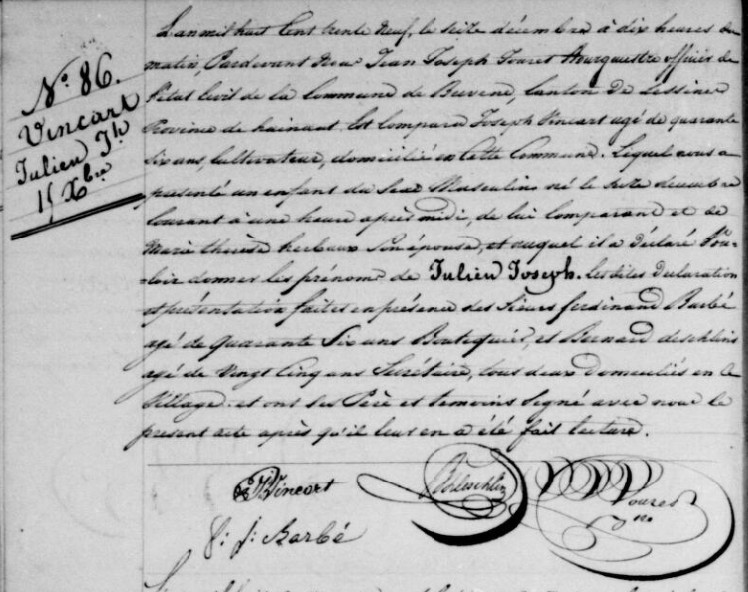 N.º 86.
Vincart
Julien Jh
15 Xbre
L'an mil huit Cent trente neuf, le seize décembre à dix heures du
matin, Pardevant Nous Jean Joseph Fourez Bourguestre officier de
l'état Civil de la Commune de Biévène, Canton de Lessines
Province de hainaut, Est Comparu Joseph Vincart agé de quarante
Six ans, Cultivateur, domicilié en Cette Commune. Lequel nous a
présenté un enfant du Sexe Masculin né le décembre
Courant à une heure après midi, de lui Comparant et de
Marie thérèse herbaux Son épouse, et auquel il a Déclaré Vou-
loir donner les prénoms de Julien Joseph. Les dites Declaration
et présentation faites en présence des Sieurs ferdinand Barbé
agé de Quarante Six ans Boutiquier, et Bernard deschlins
agé de Vingt Cinq ans Secrétaire, tous deux domiciliés en Ce
Village. et ont les Père et temoins Signé avec nous le
présent acte après qu'il leur en a été fait lecture.
Vincart
Fourez
f: j: Barbé